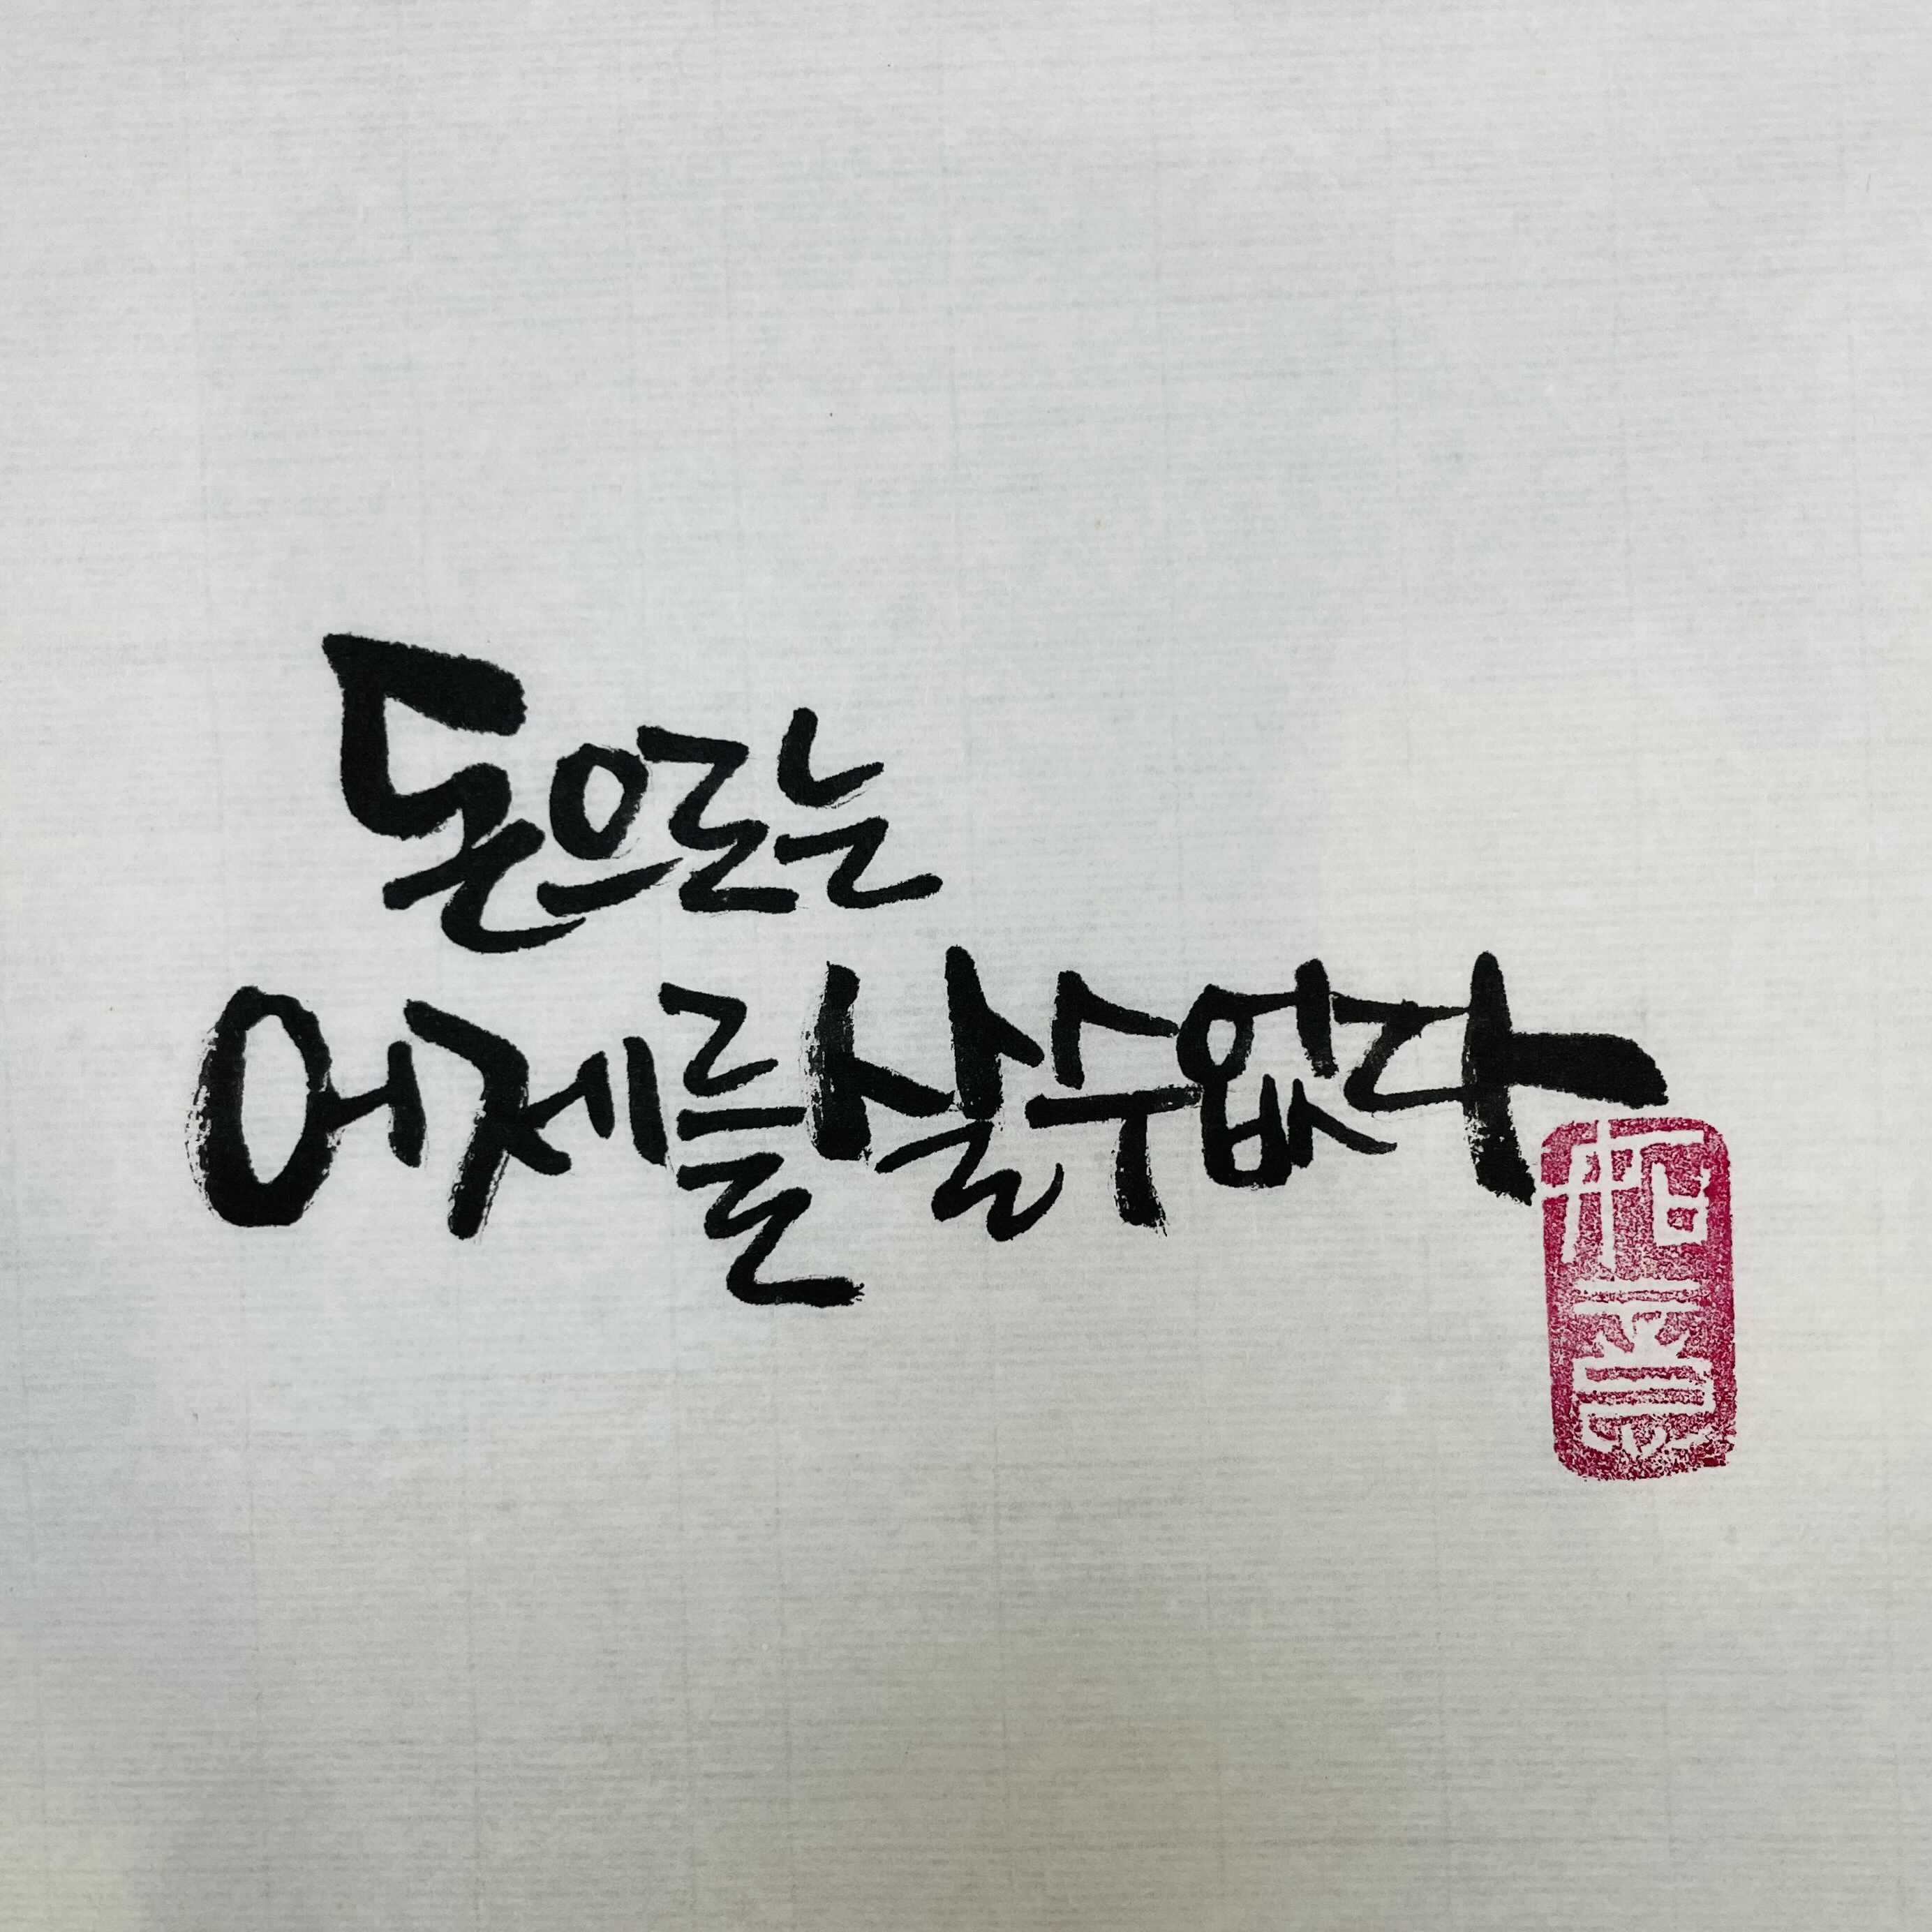 돈으로는
어제를 살 수 없다